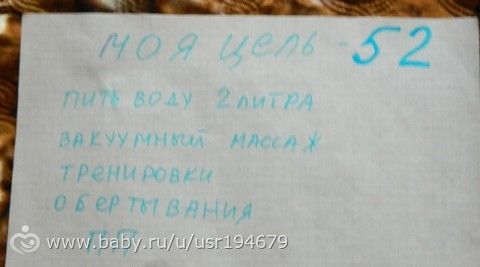 МОЯ ЦЕЛЬ - 52
ПИТЬ ВОДУ 2 ЛИТРА
ВАКУУМНЫЙ МАССАЖ
ТРЕНИРОВКИ
ОБЕРТЫВАНИЯ
П.П
www.baby.ru/u/usr194679